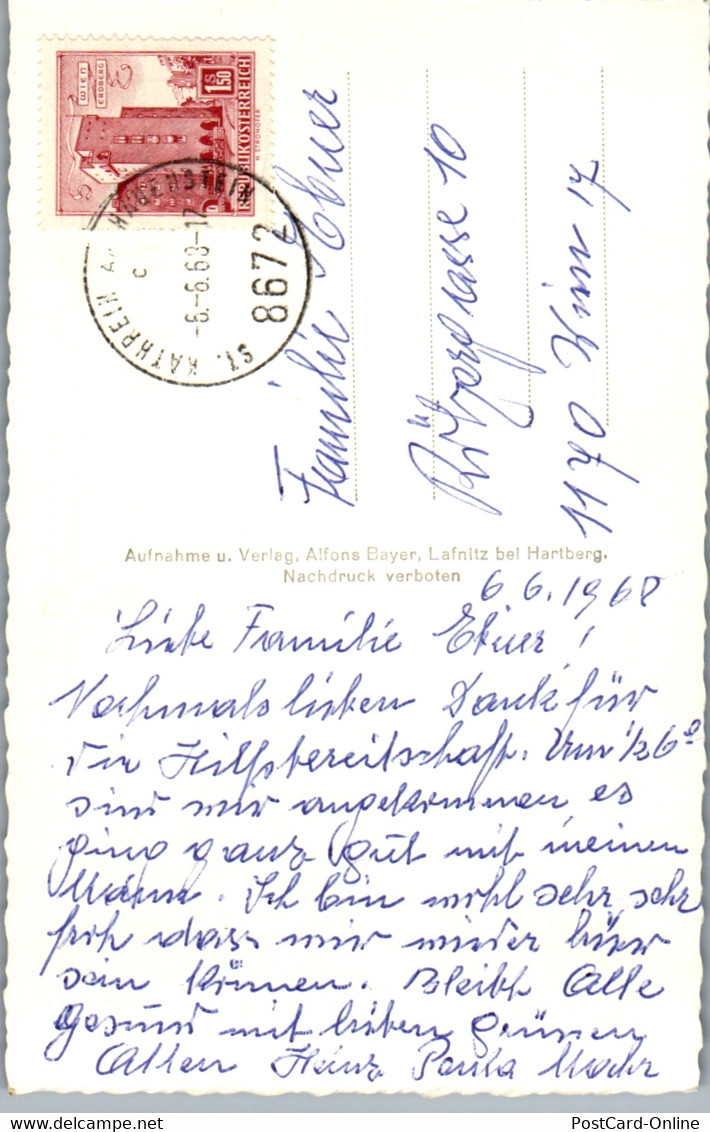 WIEN
ERDBERG
1 S 50
REPUBLIK ÖSTERREICH
H. STROHOFER
ST. KATHREIN A. HAUENSTEIN
c
-6.-6.68-17
8672
Familie
Rötzergasse 10
1170 Wien 17
Aufnahme u. Verlag, Alfons Bayer, Lafnitz bei Hartberg.
Nachdruck verboten
6.6.1968
Liebe Familie !
Nochmals lieben Dank für
die Hilfsbereitschaft. Um 1/2 6º
sind wir angekommen es
ging ganz gut mit meinen
Mann. Ich bin wohl sehr sehr
froh dass wir wieder hier
sein können. Bleibt Alle
Gesund mit lieben Grüssen
Allen Heinz Paula Mohr
PostCard-Online